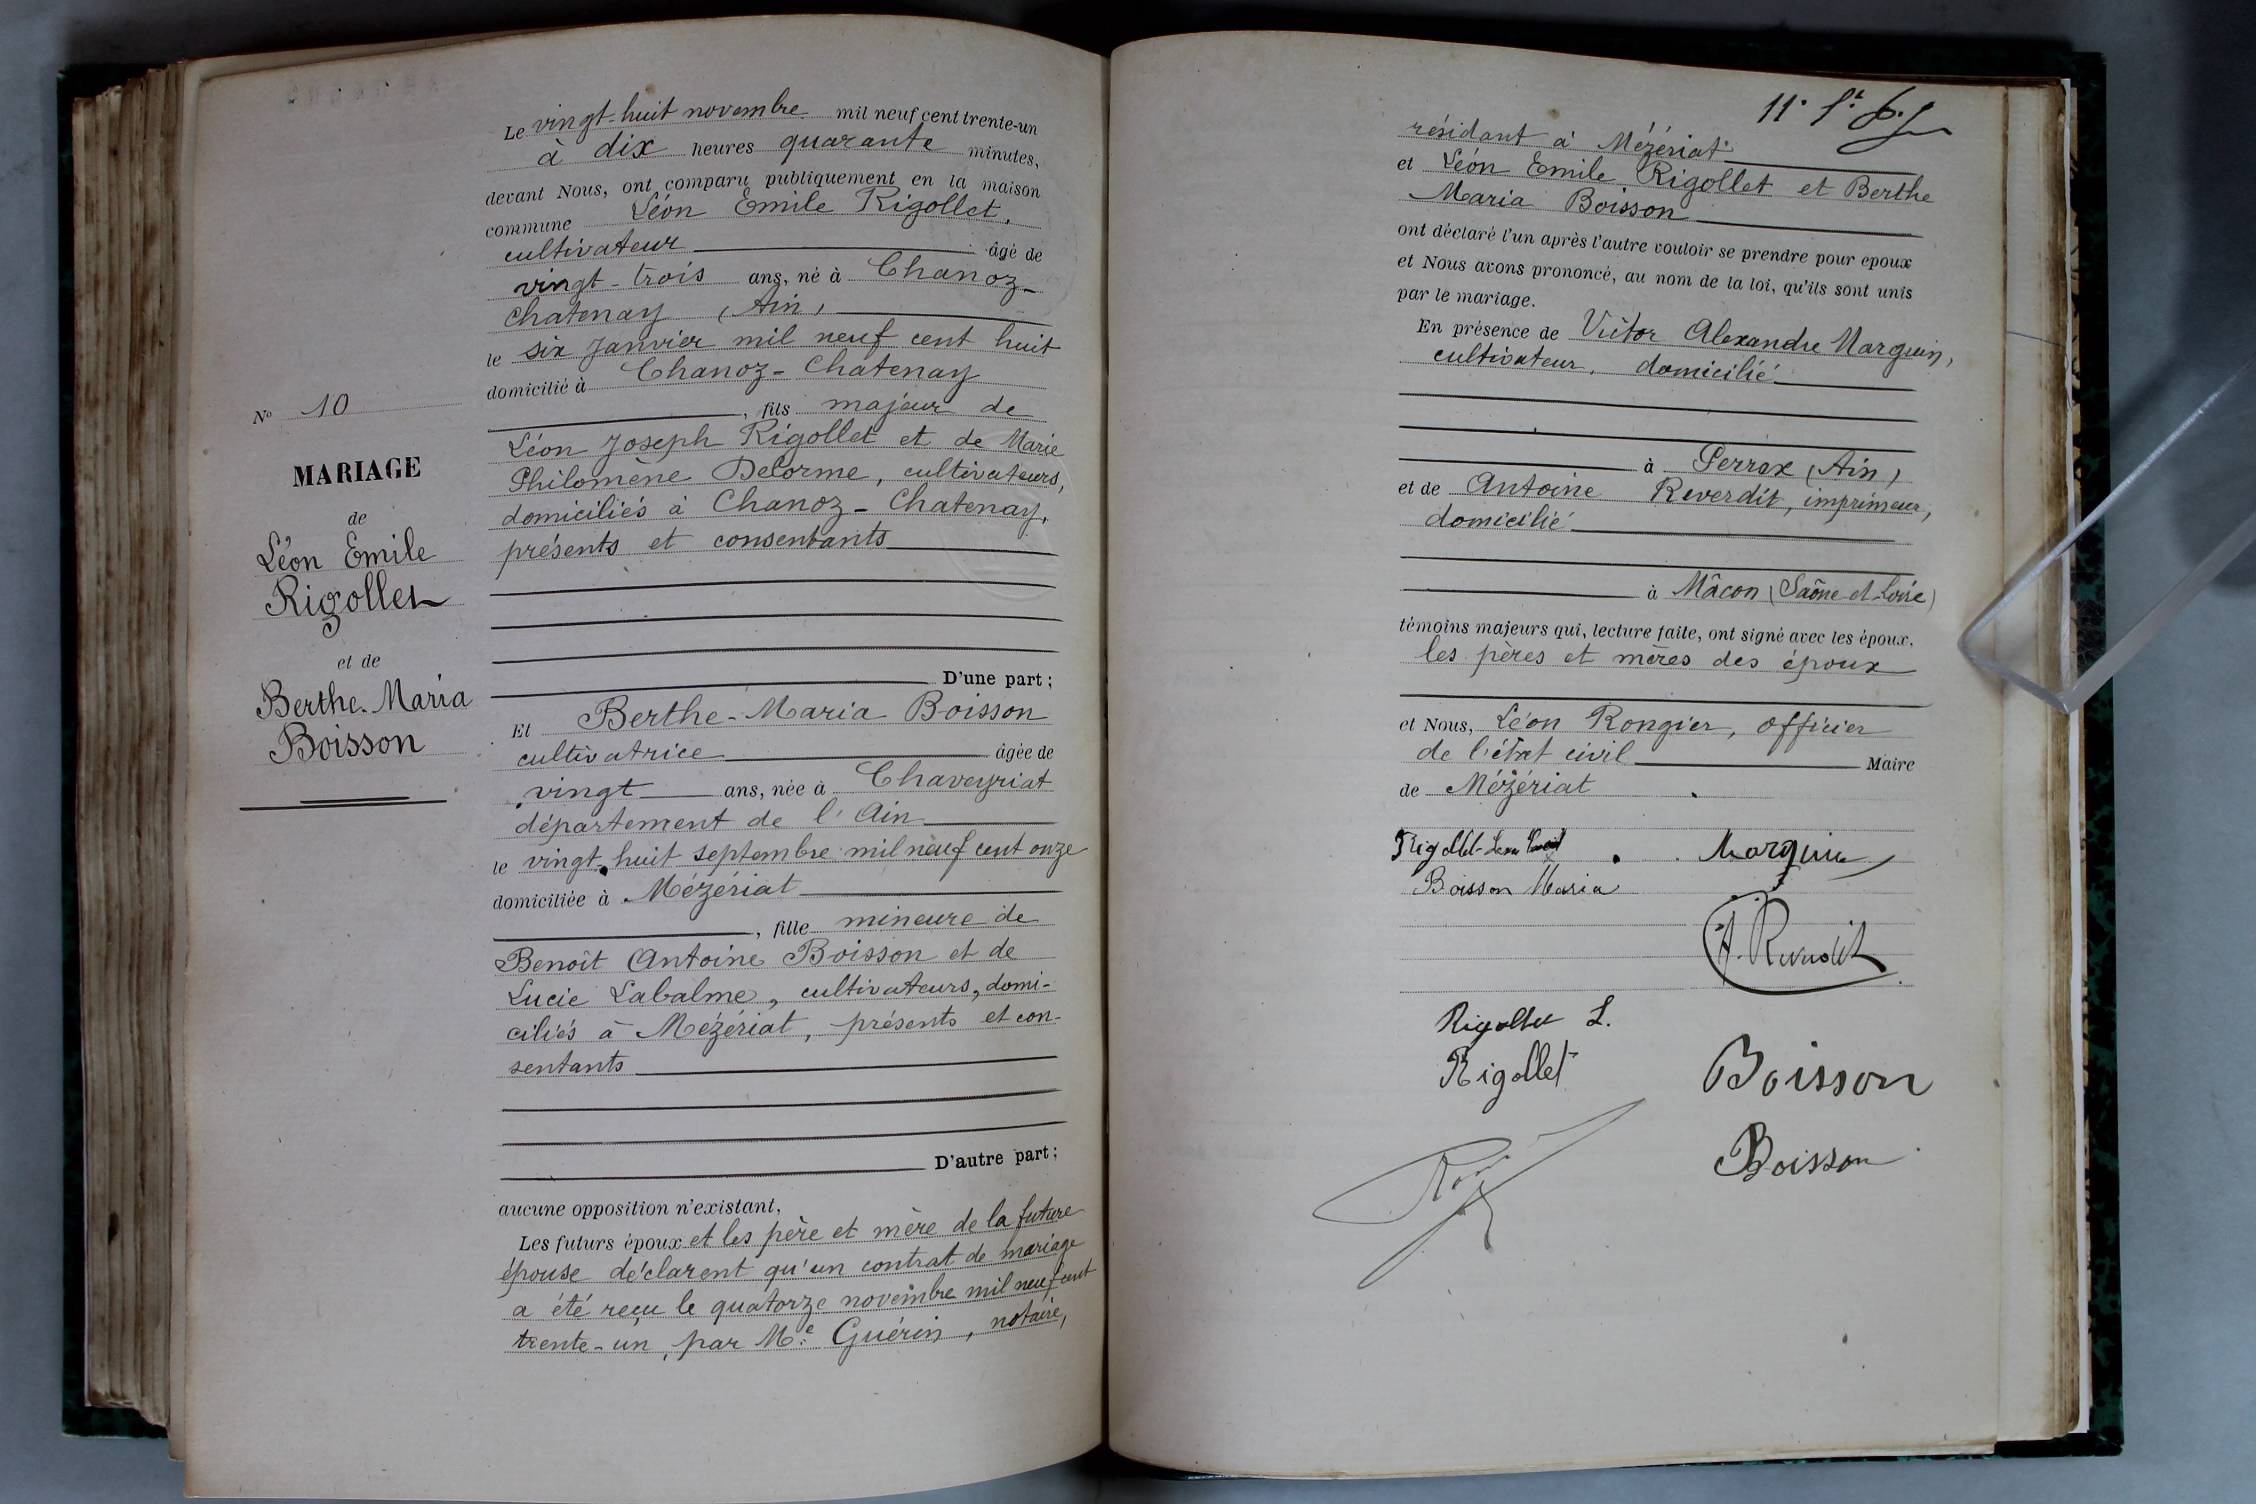 Le vingt-huit novembre mil neuf cent trente-un
à dix heures quarante minutes,
devant Nous, ont comparu publiquement en la maison
commune Léon Emile Rigollet,
cultivateur âgé de
vingt-trois ans, né à Chanoz-
Chatenay (Ain)
le six Janvier mil neuf cent huit
domicilié à Chanoz-Chatenay
, fils majeur de
Léon Joseph Rigollet et de Marie
Philomène Delorme, cultivateurs,
domiciliés à Chanoz-Chatenay,
présents et consentants
D'une part;
Et Berthe-Maria Boisson
cultivatrice âgée de
vingt ans, née à Chaveyriat
département de l'Ain
le vingt-huit septembre mil neuf cent onze
domiciliée à Mézériat
, fille mineure de
Benoît Antoine Boisson et de
Lucie Labalme, cultivateurs, domi-
ciliés à Mézériat, présents et con-
sentants
D'autre part;
aucune opposition n'existant,
Les futurs époux et les père et mère de la future
épouse déclarent qu'un contrat de mariage
a été reçu le quatorze novembre mil neuf cent
trente-un, par Me Guérin, notaire,
No 10
MARIAGE
de
Léon Emile
Rigollet
et de
Berthe-Maria
Boisson
résidant à Mézériat
et Léon Emile Rigollet et Berthe
Maria Boisson
ont déclaré l'un après l'autre vouloir se prendre pour epoux
et Nous avons prononcé, au nom de la loi, qu'ils sont unis
par le mariage.
En présence de Victor Alexandre Marguin,
cultivateur, domicilié
à Perrex (Ain)
et de Antoine Reverdit, imprimeur,
domicilié
à Mâcon (Saône-et-Loire)
témoins majeurs qui, lecture faite, ont signé avec les époux,
les pères et mères des époux
et Nous, Léon Rongier, officier
de l'état civil Maire
de Mézériat
Rigollet Léon Marguin
Boisson Maria
A. Reverdit
Rigollet L.
Rigollet Boisson
Boisson